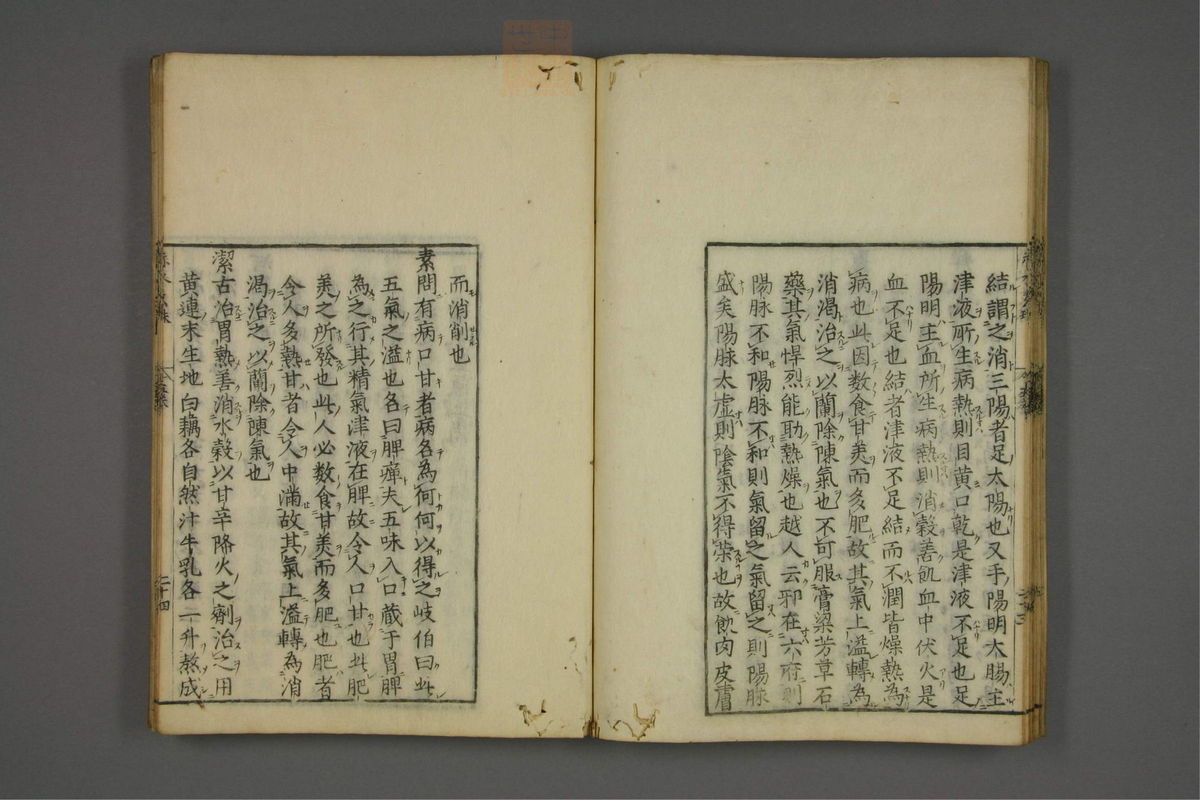 結謂之消三陽者足太陽也又手陽明太陽主
津液所生病熱則目黄口乾是津液不足也足
陽明主血所生病熱則消穀善飢血中伏火是
血不足也結者津液不足結而不潤皆燥熱為
病也此因数食甘美而多肥故其氣上溢轉為
消渇治之以蘭除陳氣也不可服膏粱芳草石
藥其氣悍烈能助熱燥也越人云邪在六府則
陽脉不和陽脉不和則氣留之氣留之則陽脉
盛矣陽脉太虚則陰氣不得栄也故飲肉皮膚
而消削也
素問有病口甘者病名為何何以得之岐伯曰此
五氣之溢也名曰脾癉夫五味入口蔵于胃脾
為之行其精氣津液在脾故令人口甘也此肥
美之所發也此人必数食甘美而多肥也肥者
令人多熱甘者令人中滿故其氣上溢轉為消
渇治之以蘭除陳氣也
潔古治胃熱善消水穀以甘辛降火之劑治之用
黄連末生地白藕各自然汁牛乳各一升熬成
二十四